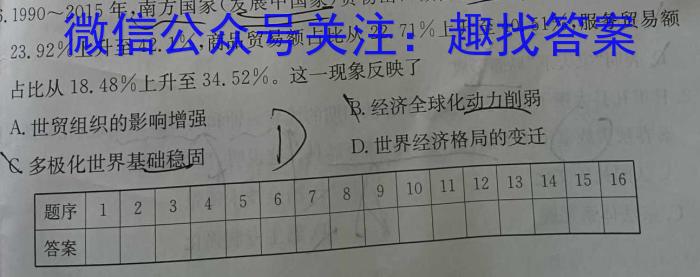 .1990～2015年,南方国家(发展中国家)
微信公众号关注：趣找答案
23.92%上升至42.1%,商品贸易额占比从22.71%上 服务贸易额
占比从18.48%上升至34.52%。这一现象反映了
A.世贸组织的影响增强
B.经济全球化动力削弱
C.多极化世界基础稳固
D.世界经济格局的变迁
D
题序 1 2 3 4 5 6 7 8 9 10 11 12 13 14 15 16
答案